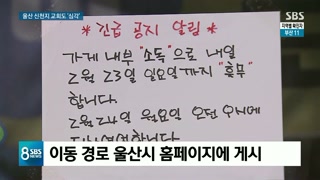 울산 신천지 교회도 '심각'
SBS
지역별 확진자
부산 11
* 긴급 공지 알림 *
가게 내부 "소독"으로 내일
2월 23일 일요일까지 "휴무"
합니다.
2월 24일 월요일 오전
8 SBS NEWS
이동 경로 울산시 홈페이지에 게시